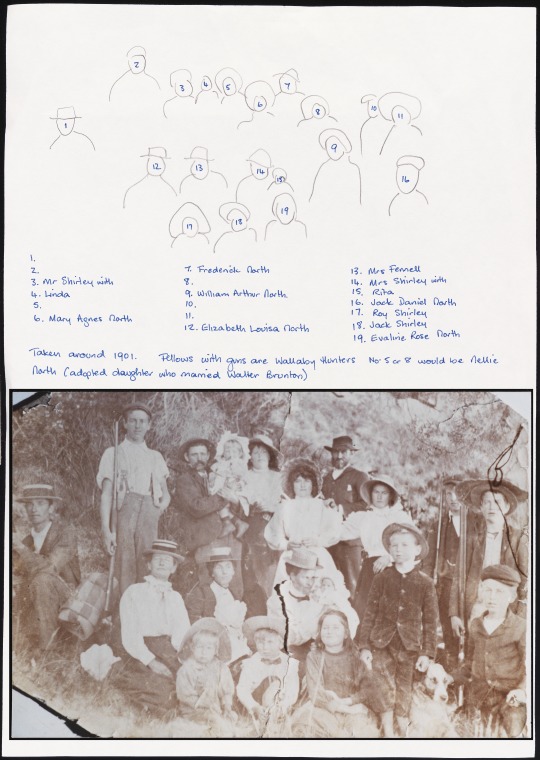 2
3
4
5
6
7
8
10
11
1
9
12
13
14
15
16
17
18
19
1.
2.
3. Mr Shirley with
4. Linda
5.
6. Mary Agnes North
7. Frederick North
8.
9. William Arthur North
10.
11.
12. Elizabeth Louisa North
13. Mrs Fennell
14. Mrs Shirley with
15. Rita
16. Jack Daniel North
17. Roy Shirley
18. Jack Shirley
19. Evaline Rose North
Taken around 1901. Fellows with guns are Wallaby Hunters No 5 or 8 would be Nellie
North (adopted daughter who married Walter Brunton)